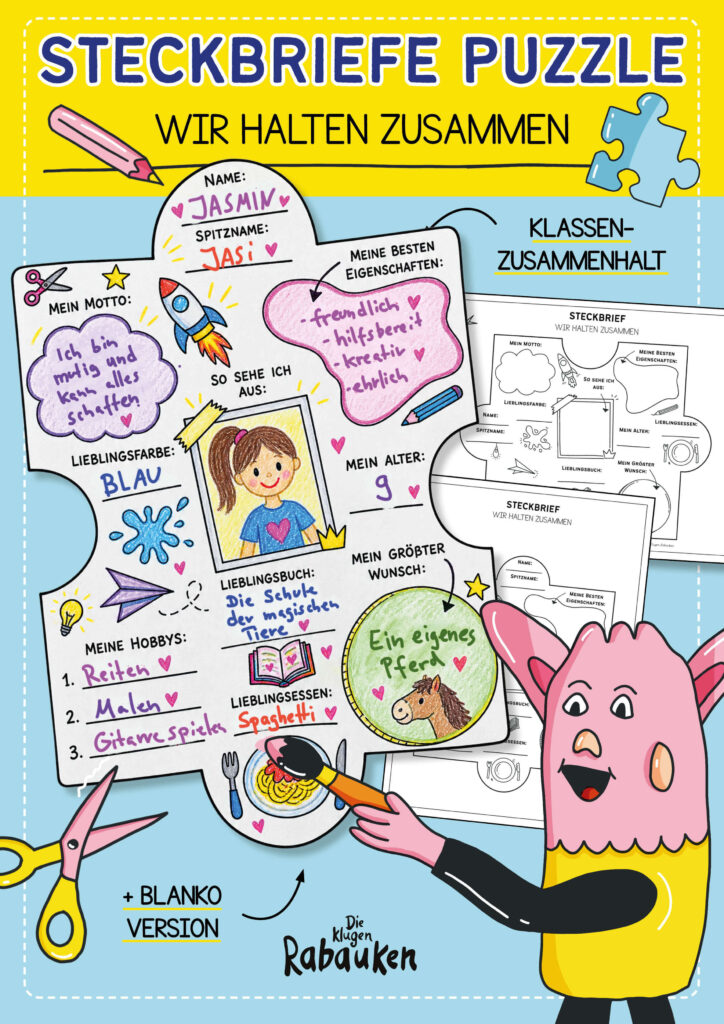 STECKBRIEFE PUZZLE
WIR HALTEN ZUSAMMEN
KLASSEN-
ZUSAMMENHALT
NAME:
JASMIN
SPITZNAME:
JASi
MEIN MOTTO:
Ich bin
mutig und
kann alles
schaffen
MEINE BESTEN
EIGENSCHAFTEN:
- freundlich
- hilfsbereit
- kreativ
- ehrlich
SO SEHE ICH
AUS:
LIEBLINGSFARBE:
BLAU
MEIN ALTER:
9
LIEBLINGSBUCH:
Die Schule
der magischen
Tiere
MEIN GRÖßTER
WUNSCH:
Ein eigenes
Pferd
MEINE HOBBYS:
1. Reiten
2. Malen
3. Gitarre spielen
LIEBLINGSESSEN:
Spaghetti
STECKBRIEF
WIR HALTEN ZUSAMMEN
MEIN MOTTO:
MEINE BESTEN
EIGENSCHAFTEN:
SO SEHE ICH
AUS:
LIEBLINGSFARBE:
LIEBLINGSESSEN:
NAME:
SPITZNAME:
MEIN ALTER:
LIEBLINGSBUCH:
MEIN GRÖßTER
WUNSCH:
STECKBRIEF
WIR HALTEN ZUSAMMEN
NAME:
SPITZNAME:
MEINE BESTEN
EIGENSCHAFTEN:
+ BLANKO
VERSION
Die
klugen
Rabauken